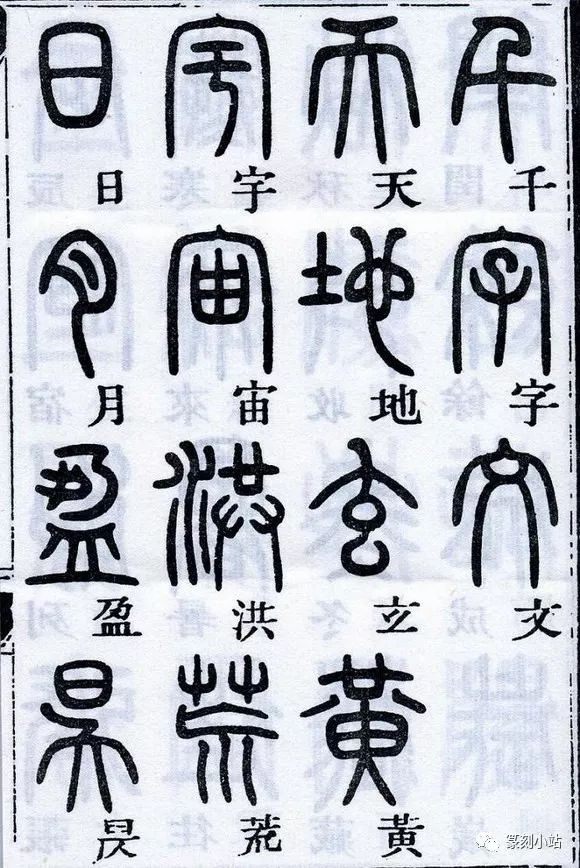 千字文
天地玄黃
宇宙洪荒
日月盈昃
篆刻小站